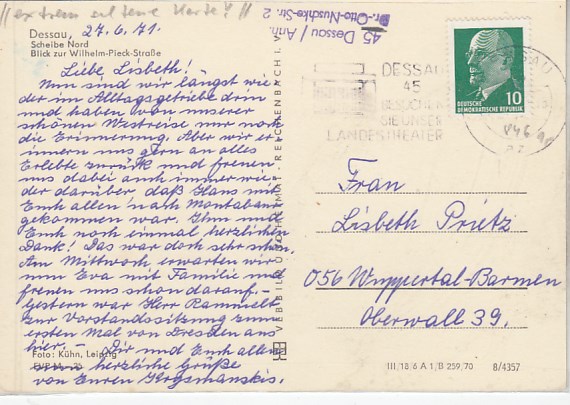 // extrem seltene Karte! //
Dessau, 27.6.71.
Scheibe Nord
Blick zur Wilhelm-Pieck-Straße
Liebe Lisbeth!
Nun sind wir längst wie-
der im Alltagsgetriebe drin
und haben von unserer
schönen Westreise nur noch
die Erinnerung. Aber wir er-
innern uns gern an alles
Erlebte zurück und freuen
uns dabei auch immer wie-
der darüber daß Hans mit
Euch allen nach Montabaur
gekommen war. Ihm und
Euch noch einmal herzlichen
Dank! Das war doch sehr schön.
Am Mittwoch erwarten wir
nun Eva mit Familie und
freuen uns schon darauf.-
Gestern war Herr Rammelt
zur Vorstandssitzung zum
ersten Mal von Dresden aus
hier. – Dir und Euch allen
herzliche Grüße
von Euren
Foto: Kühn, Leipzig
45 Dessau / Anh.
Dr.-Otto-Nuschke-Str. 2
DESSAU
45
BESUCHEN
SIE UNSER
LANDESTHEATER
10
DEUTSCHE
DEMOKRATISCHE REPUBLIK
Frau
Lisbeth Prietz
056 Wuppertal-Barmen
Oberwall 39.
III/18/6 A 1/B 259/70 8/4357